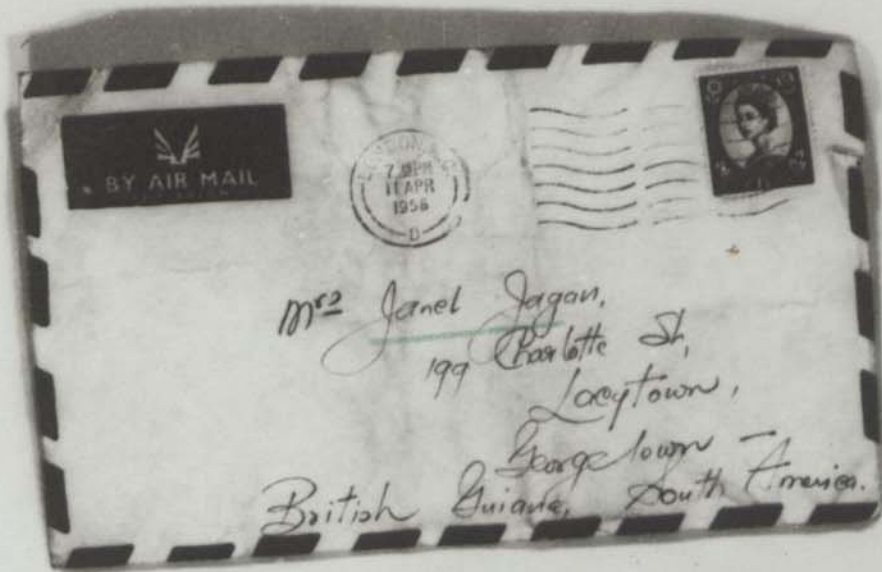 BY AIR MAIL
LONDON
PM
11 APR
1956
D
Mrs Janet Jagan,
199 Charlotte St,
Lacytown,
Georgetown —
British Guiana, South America.